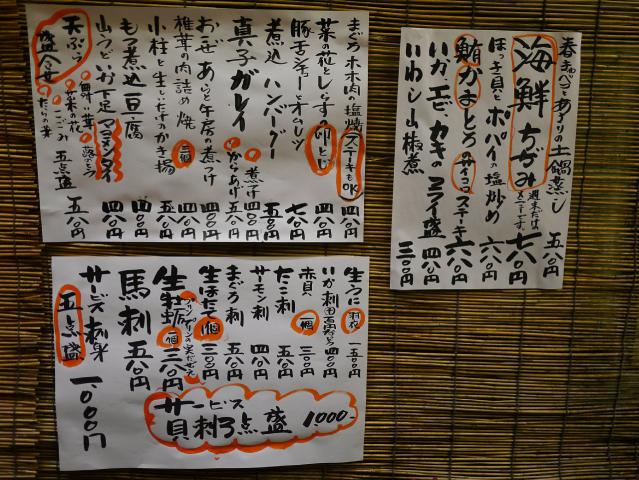 春キャベツとあさりの土鍋蒸し 五八〇円
海鮮ちぢみ 七八〇円
ほっき貝とポパイの塩炒め 六八〇円
鮪かまとろのサイコロステーキ 六八〇円
いか、エビ、カキのフライ盛 四八〇円
いわし山椒煮 三八〇円
まぐろホホ肉の塩焼 ステーキもOK 四八〇円
菜の花としらすの卵とじ 四八〇円
豚舌シチューオムレツ 七八〇円
煮込ハンバーグ 五八〇円
真子ガレイ 煮つけ からあげ 四八〇円
おっぜあらと牛房の煮つけ 四八〇円
椎茸の肉詰め焼 三個 四八〇円
小柱と生のりのかき揚 五八〇円
もつ煮込豆腐 四八〇円
山うど、いか下足マヨネーズ 四八〇円
天ぷら盛合せ 舞い茸 蕗のとう 菜の花 こごみ たらの芽 五点盛 五八〇円
生うに 羽衣 一、五〇〇円
いか刺 四八〇円
赤貝 一個 三〇〇円
たこ刺 五八〇円
サーモン刺 四八〇円
まぐろ刺 五八〇円
生ほたて 一個 三〇〇円
生牡蛎 一個 三〇〇円
馬刺 五八〇円
サービス刺身五点盛 一、〇〇〇円
サービス
貝刺3点盛 1000-